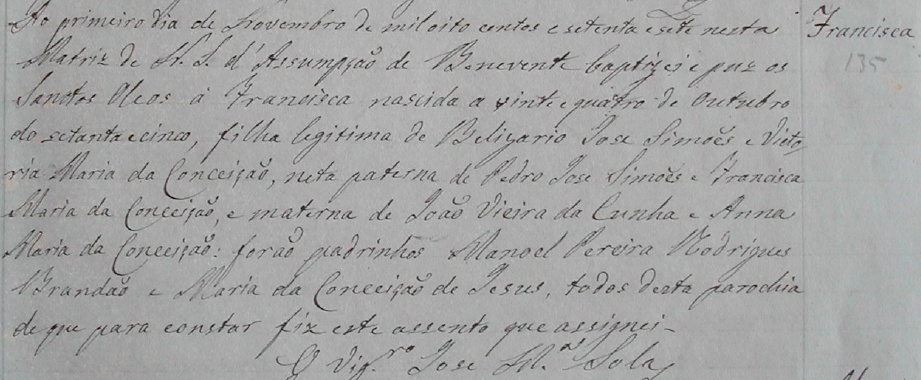 Ao primeiro dia de Novembro de mil oito centos e setenta e sete nesta
Matriz de N. S. d'Assumpção de Benevente baptizei e puz os
Sanctos Oleos á Francisca nascida a vinte e quatro de Outubro
do setenta e cinco, filha legitima de Belizario Jose Simões e Victo
ria Maria da Conceição, neta paterna de Pedro Jose Simões e Francisca
Maria da Conceição, e materna de João Vieira da Cunha e Anna
Maria da Conceição: forão padrinhos Manoel Pereira Rodrigues
Brandão e Maria da Conceição de Jesus, todos desta parochia
de que para constar fiz este assento que assignei-
O Vig.ro Jose M.a Sola
Francisca
135